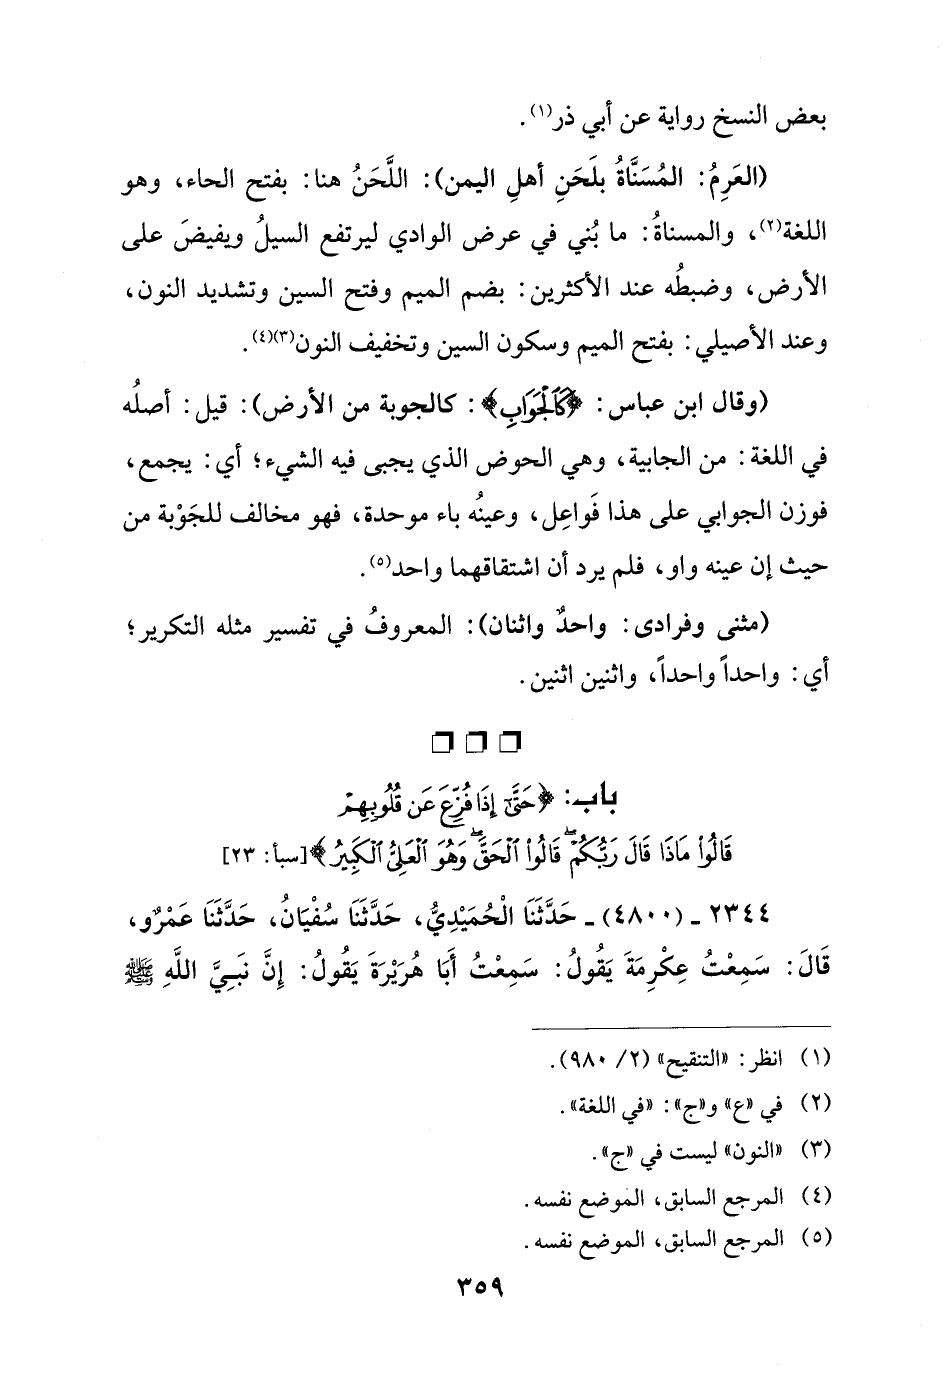 بعض النسخ رواية عن أبي ذر(١).
(العَرِمُ: المُسَنَّاةُ بلَحَنِ أهلِ اليمن): اللَّحَنُ هنا: بفتح الحاء، وهو
اللغة(٢)، والمسناةُ: ما بُني في عرض الوادي ليرتفع السيلُ ويفيضَ على
الأرض، وضبطُه عند الأكثرين: بضم الميم وفتح السين وتشديد النون،
وعند الأصيلي: بفتح الميم وسكون السين وتخفيف النون(٣)(٤).
(وقال ابن عباس: ﴿كَالْجَوَابِ﴾: كالجوبة من الأرض): قيل: أصلُه
في اللغة: من الجابية، وهي الحوض الذي يجبى فيه الشيء؛ أي: يجمع،
فوزن الجوابي على هذا فَواعِل، وعينُه باء موحدة، فهو مخالف للجَوْبة من
حيث إن عينه واو، فلم يرد أن اشتقاقهما واحد(٥).
(مثنى وفرادى: واحدٌ واثنان): المعروفُ في تفسير مثله التكرير؛
أي: واحداً واحداً، واثنين اثنين.
باب: ﴿حَتَّىٰٓ إِذَا فُزِّعَ عَن قُلُوبِهِمْ
قَالُوا۟ مَاذَا قَالَ رَبُّكُمْ ۖ قَالُوا۟ ٱلْحَقَّ ۖ وَهُوَ ٱلْعَلِىُّ ٱلْكَبِيرُ﴾ [سبأ: ٢٣]
٢٣٤٤ ـ (٤٨٠٠) ـ حَدَّثَنَا الْحُمَيْدِيُّ، حَدَّثَنَا سُفْيَانُ، حَدَّثَنَا عَمْرٌو،
قَالَ: سَمِعْتُ عِكْرِمَةَ يَقُولُ: سَمِعْتُ أَبَا هُرَيْرَةَ يَقُولُ: إِنَّ نَبِيَّ اللَّهِ ﷺ
(١) انظر: «التنقيح» (٢/ ٩٨٠).
(٢) في «ع» و«ج»: «في اللغة».
(٣) «النون» ليست في «ج».
(٤) المرجع السابق، الموضع نفسه.
(٥) المرجع السابق، الموضع نفسه.
٣٥٩